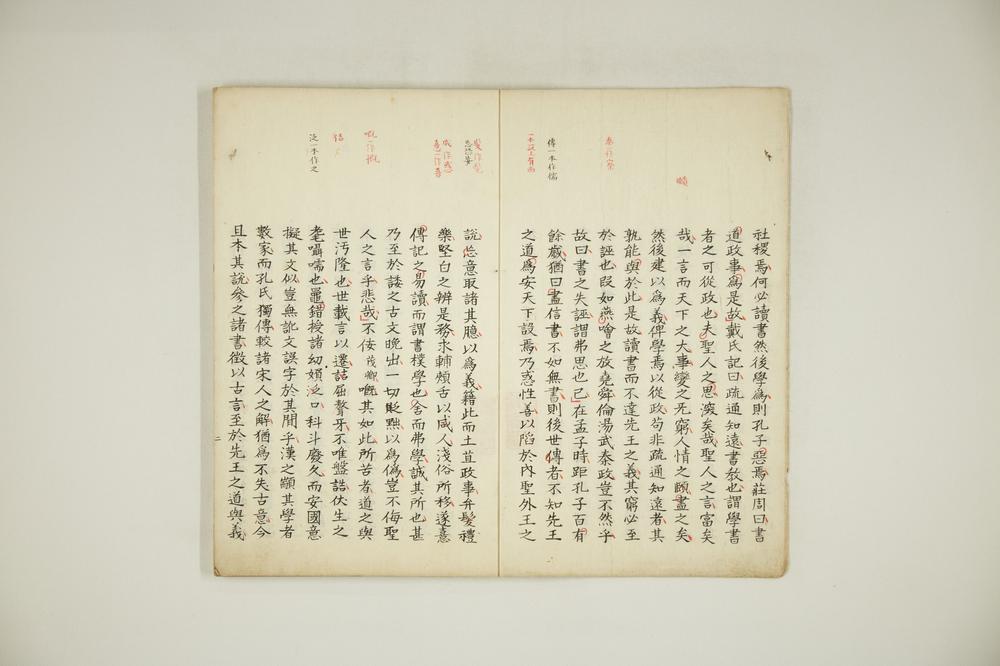 賾
泰作蔡
傳一本作儒
一本設上有而
社稷焉何必讀書然後學為則孔子惡焉莊周曰書
道政事為是故戴氏記曰疏通知遠書敎也謂學書
者之可從政也夫聖人之思深矣哉聖人之言富矣
哉一言而天下之大事變之无窮人情之頤盡之矣
然後建以為義俾學焉以從政苟非疏通知遠者其
孰能與於此是故讀書而不達先王之義其窮必至
於誣也叚如燕噲之放堯舜倫湯武泰政豈不然乎
故曰書之失誣謂弗思也已在孟子時距孔子百有
餘歲猶曰盡信書不如無書則後世傳者不知先王
之道為安天下設焉乃惑性善以陷於內聖外王之
髮作髦
恣恐妄
咸作惑
意一作喜
嘅一作慨
詰
泛一本作之
說恣意取諸其臆以為義籍此而土苴政事弁髮禮
樂堅白之辨是務求輔頰舌以咸人淺俗所移遂憙
傳記之易讀而謂書樸學也舍而弗學誠其所也甚
乃至於諉之古文晚出一切貶黜以為偽豈不侮聖
人之言乎悲哉不佞茂卿嘅其如此所苦者道之與
世汚隆也世載言以遷詰屈聱牙不唯盤誥伏生之
耄囁嚅也鼂錯授諸幼嬾泛口科斗廢久而安國意
擬其文似豈無訛文誤字於其間乎漢之顓其學者
數家而孔氏獨傳較諸宋人之解猶為不失古意今
且本其說參之諸書徵以古言至於先王之道與義
二